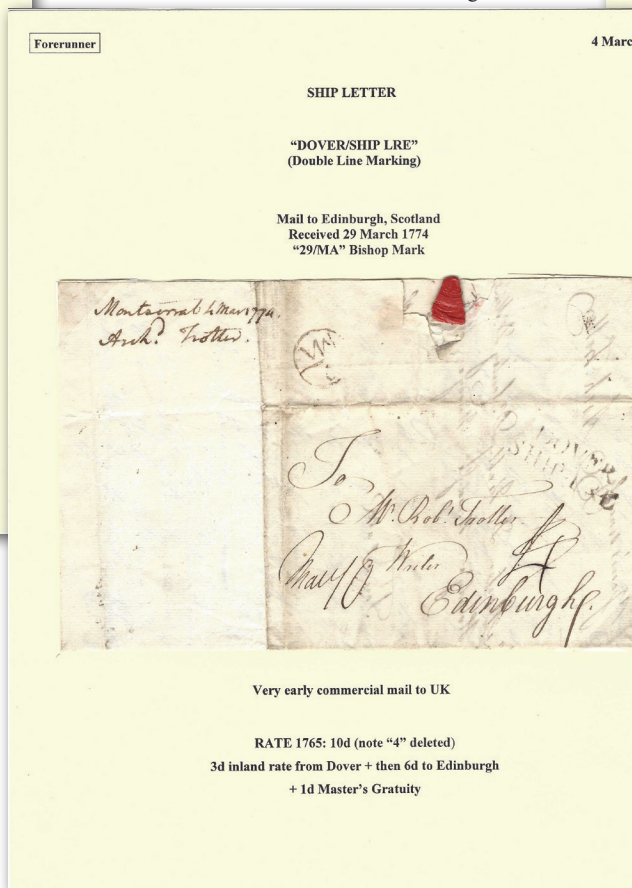 Forerunner
4 Marc
SHIP LETTER
“DOVER/SHIP LRE”
(Double Line Marking)
Mail to Edinburgh, Scotland
Received 29 March 1774
“29/MA” Bishop Mark
Montserrat 4 Mar 1774.
Archd. Trotter.
DOVER
SHIP LRE
To
Mr. Robt. Trotter
Writer
4
Edinburgh.
Very early commercial mail to UK
RATE 1765: 10d (note “4” deleted)
3d inland rate from Dover + then 6d to Edinburgh
+ 1d Master’s Gratuity